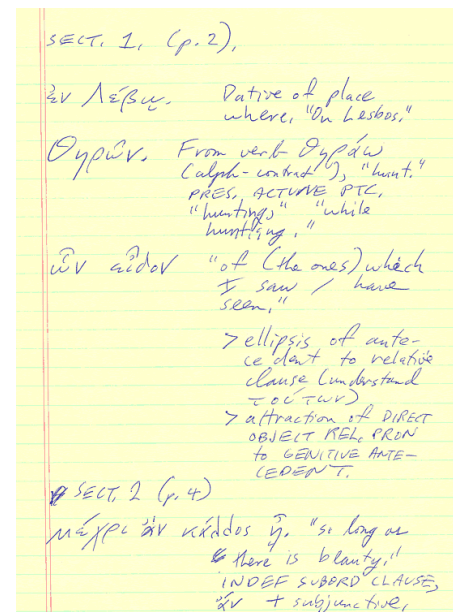 SECT. 1, (p. 2),
ἐν Λέσβῳ. Dative of place
where, "On Lesbos."
Θηρῶν. From verb Θηράω
(alph-contract), "hunt."
PRES. ACTIVE PTC,
"hunting," "while
hunting."
ὧν εἶδον "of (the ones) which
I saw / have
seen."
> ellipsis of ante-
cedent to relative
clause (understand
τούτων)
> attraction of DIRECT
OBJECT REL. PRON
to GENITIVE ANTE-
CEDENT.
SECT. 2 (p. 4)
μέχρι ἂν κάλλος ᾖ. "so long as
there is beauty."
INDEF SUBORD CLAUSE,
ἄν + subjunctive,